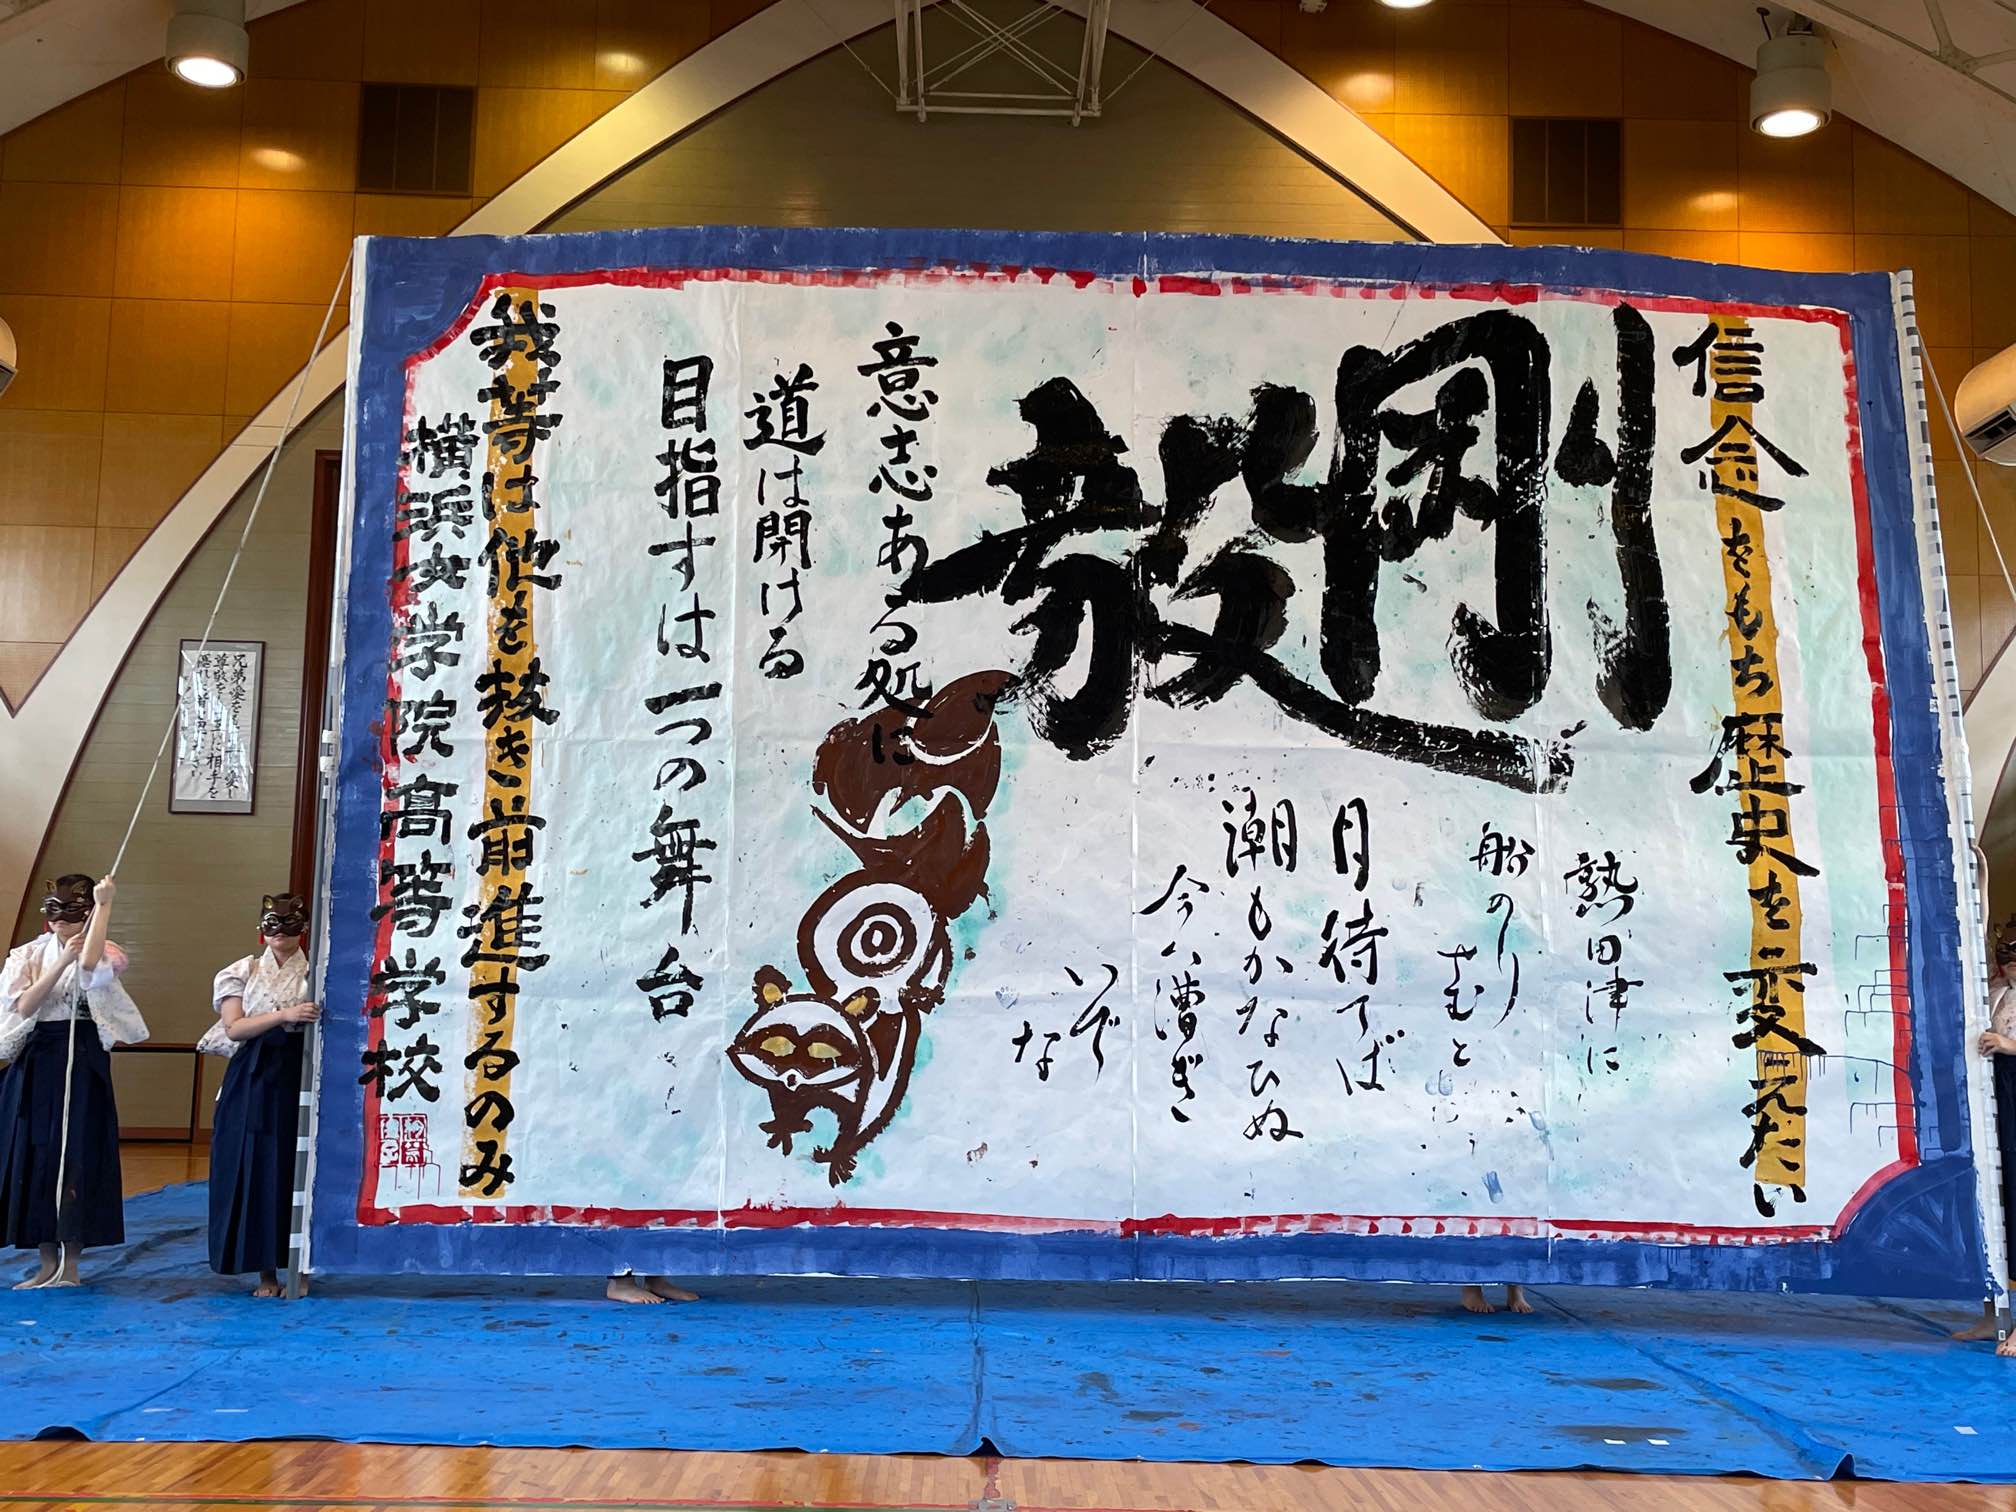 信念をもち歴史を変えたい
剛毅
熟田津に
船のりせむと
月待てば
潮もかなひぬ
今は漕ぎ
いで
な
意志ある処に
道は開ける
目指すは一つの舞台
我等は他を抜き前進するのみ
横浜女学院高等学校